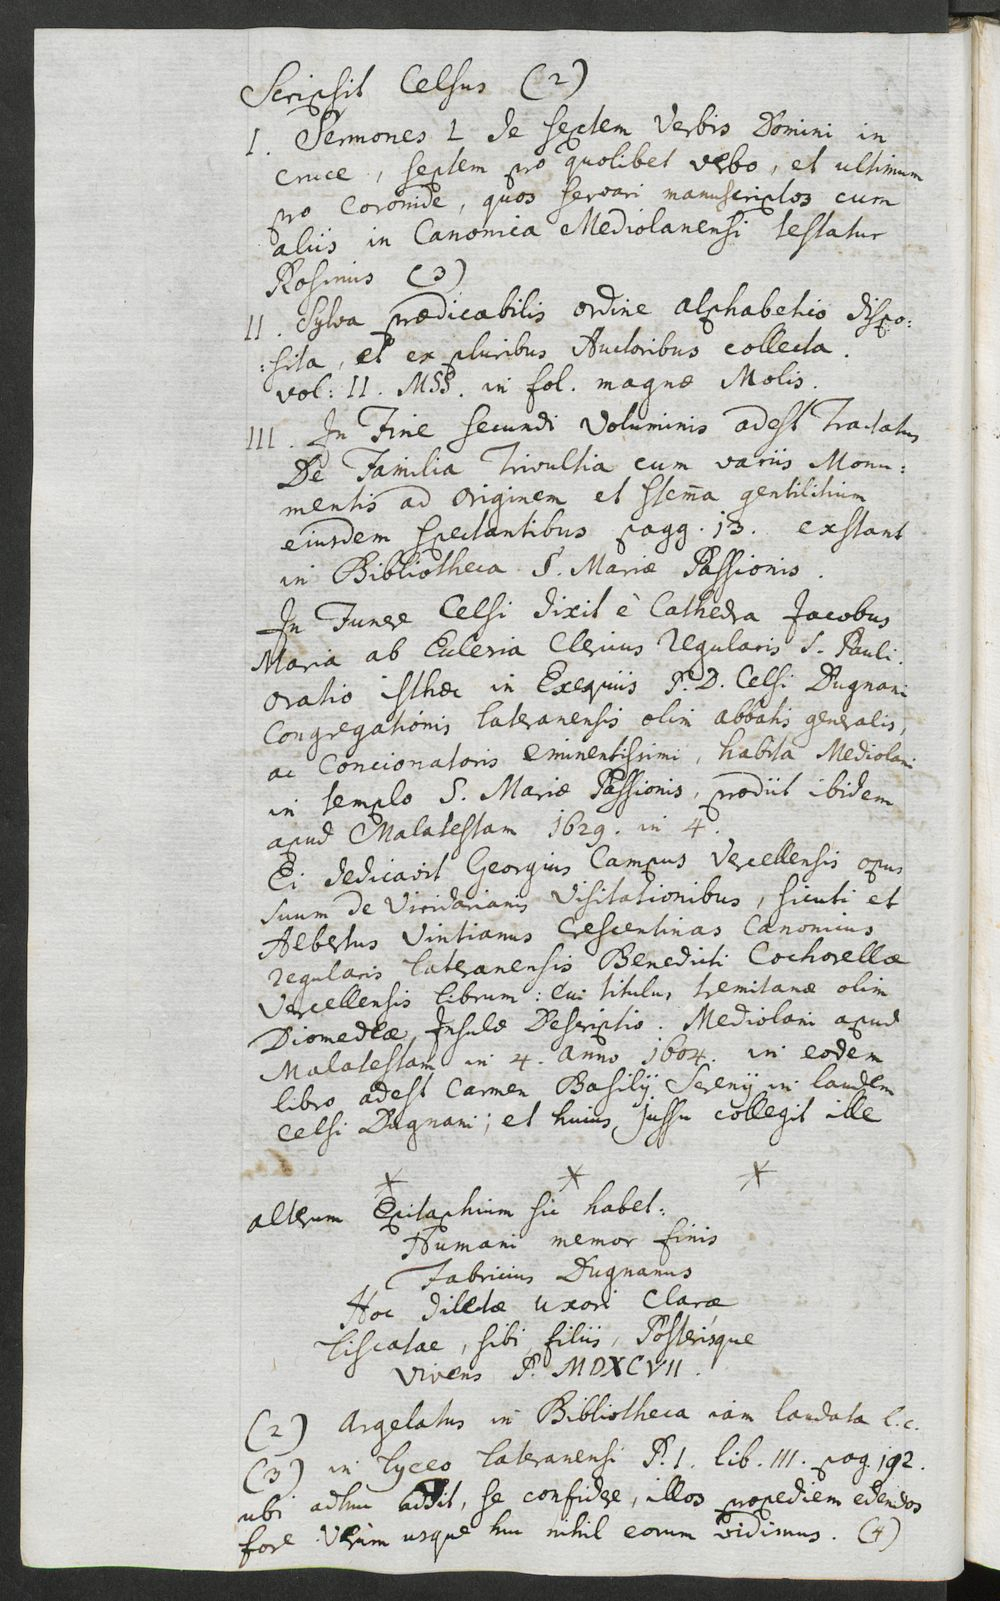 Scripsit Celsus (2)
I. Sermones L de septem Verbis Domini in
cruce, septem pro quolibet verbo, et ultimum
pro coronide, quos servari manuscriptos cum
aliis in Canonica Mediolanensi testatur
Rosinius (3)
II. Sylva prædicabilis ordine alphabetico dispo:
:sita, et ex pluribus Auctoribus collecta.
vol: II. MSS. in fol. magnæ Molis.
III. In Fine secundi Voluminis adest Tractatus
De Familia Trivultia cum variis Monu:
mentis ad originem et stem̄a gentilitium
eiusdem spectantibus pagg. 13. exstant
in Bibliotheca S. Mariæ Passionis.
In Funere Celsi dixit è Cathedra Jacobus
Maria ab Ecclesia Clericus regularis S. Pauli.
oratio isthæc in Exequiis P. D. Celsi Dugnani
Congregationis lateranensis olim abbatis generalis,
ac Concionatoris eminentissimi, habita Mediolani
in templo S. Mariæ Passionis, prodiit ibidem
apud Malatestam 1629. in 4.
Ei dedicavit Georgius Campus Vercellensis opus
suum de Viridarianis Visitationibus, sicuti et
Albertus Vintianus Crescentinas Canonicus
regularis lateranensis Benedicti Cochorellæ
Vercellensis librum: cui titulus tremitanæ olim
Diomedeæ Insulæ Descriptio. Mediolani apud
Malatestam in 4. anno 1604. in eodem
libro adest Carmen Basilij Serenij in laudem
Celsi Dugnani; et huius jussu collegit ille
* * *
alterum Epitaphium sic habet:
Humani memor finis
Fabricius Dugnanus
Hoc dilectæ uxori Claræ
liscatae, sibi, filiis, Posterisque
vivens P. MDXCVII.
(2) Argelatus in Bibliotheca iam laudata l.c.
(3) in lyceo lateranensi P. I. lib. III. pag. 192.
ubi adhuc addit, se confidere, illos propediem edendos
fore. Verùm usque huc nihil eorum vidimus. (4)